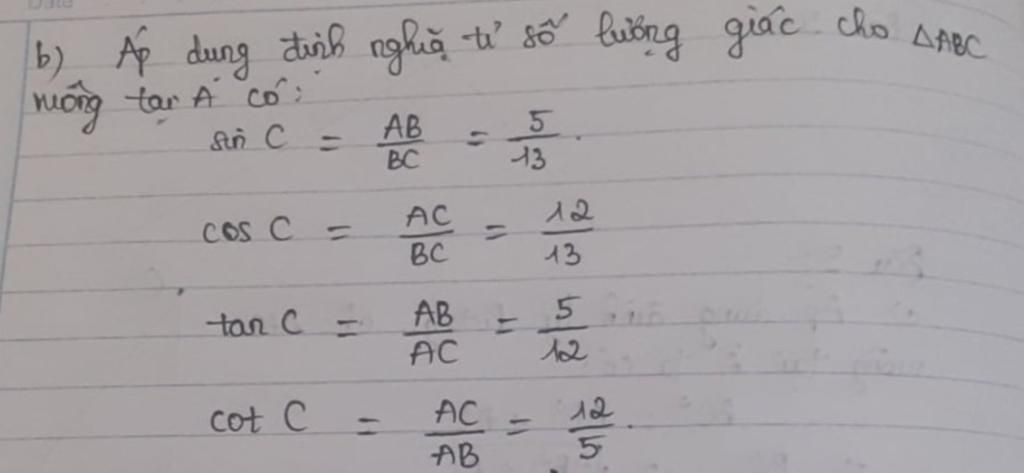 b) Áp dụng định nghĩa tỉ số lượng giác cho ΔABC
vuông tại A có:
sin C = AB/BC = 5/13.
cos C = AC/BC = 12/13
tan C = AB/AC = 5/12
cot C = AC/AB = 12/5.